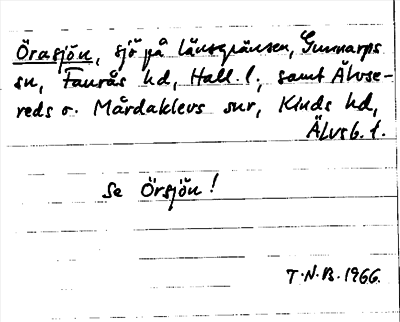 Örasjön, sjö på länsgränsen, Gunnarps
sn, Faurås hd, Hall. l., samt Älvse-
reds o. Mårdaklevs snr, Kinds hd,
Älvsb. l.
Se Örsjön!
T.N.B. 1966.